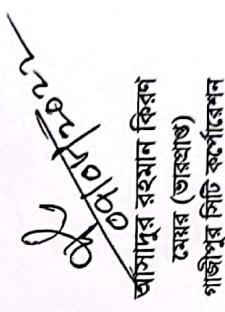 ০৭/০৮/২০২২
আসাদুর রহমান কিরণ
মেয়র (ভারপ্রাপ্ত)
গাজীপুর সিটি কর্পোরেশন